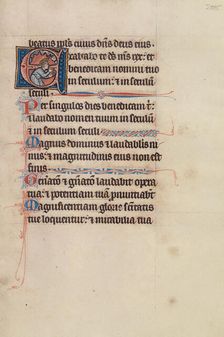 beatus ppls cuius dns deus eius
Exaltabo te ds ms rex: et
benedicam nomini tuo
in seculum et in seculum
seculi
Per singulos dies benedicam t:
et laudabo nomen tuum in seculu
et in seculum seculi
Magnus dominus et laudabilis ni
mis: et magnitudinis eius non est
finis
Gen̄atō et gn̄atō laudabit opera
tua: et potentiam tuam
Magnificentiam glorie sc̄itatis
tue loquentur: et mirabilia tua